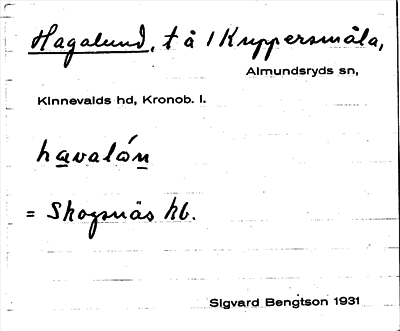 Hagalund, t å 1 Kuppersmåla,
Almundsryds sn,
Kinnevalds hd, Kronob. l.
havalón
= Skogsnäs hb.
Sigvard Bengtson 1931